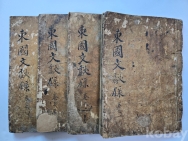 東國文獻錄
東國文獻錄
東國文獻錄
東國文獻錄
kobay